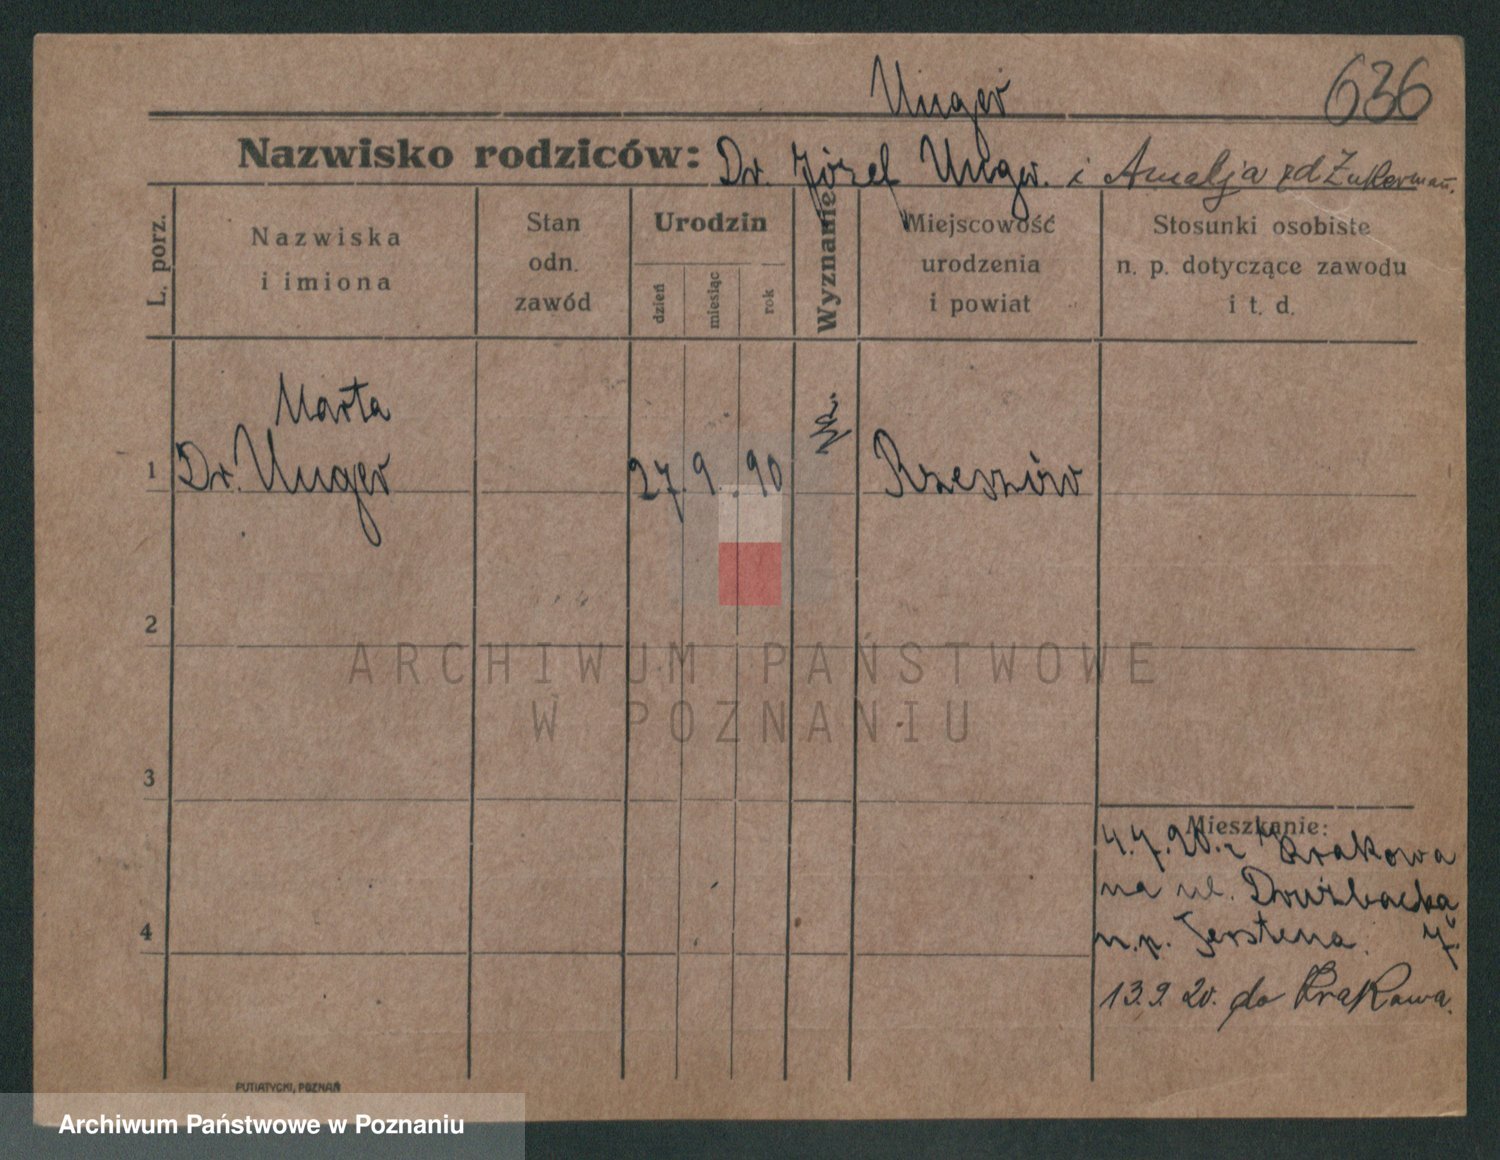 Unger
636
Nazwisko rodziców: Dr. Józef Unger. i Amalja zd Zukerman.
L. porz.
Nazwiska
i imiona
Stan
odn.
zawód
Urodzin
dzień
miesiąc
rok
Wyznanie
Miejscowość
urodzenia
i powiat
Stosunki osobiste
n. p. dotyczące zawodu
i t. d.
Marta
1 Dr. Unger 27. 9. 90 Rzeszów
2
ARCHIWUM PAŃSTWOWE
W POZNANIU
3
Mieszkanie:
4.7.20. z Krakowa
na ul. Drużbacką
4
n.p. Jerstena. 7.
13.9.20. do Krakowa.
PUTIATYCKI, POZNAŃ
Archiwum Państwowe w Poznaniu